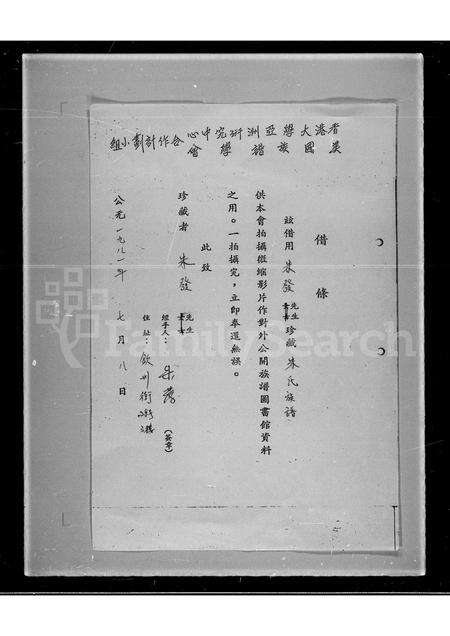 香港大學亞洲研究中心
美國族譜學會
合作計劃小組
借條
茲借用朱發先生珍藏朱氏族譜
供本會拍攝微縮影片作對外公開族譜圖書館資料
之用。一拍攝完，立即奉還無誤。
此致
珍藏者 朱發 先生
經手人：朱發（簽章）
住址：欽州街
公元一九八一年 七月八日
FamilySearch